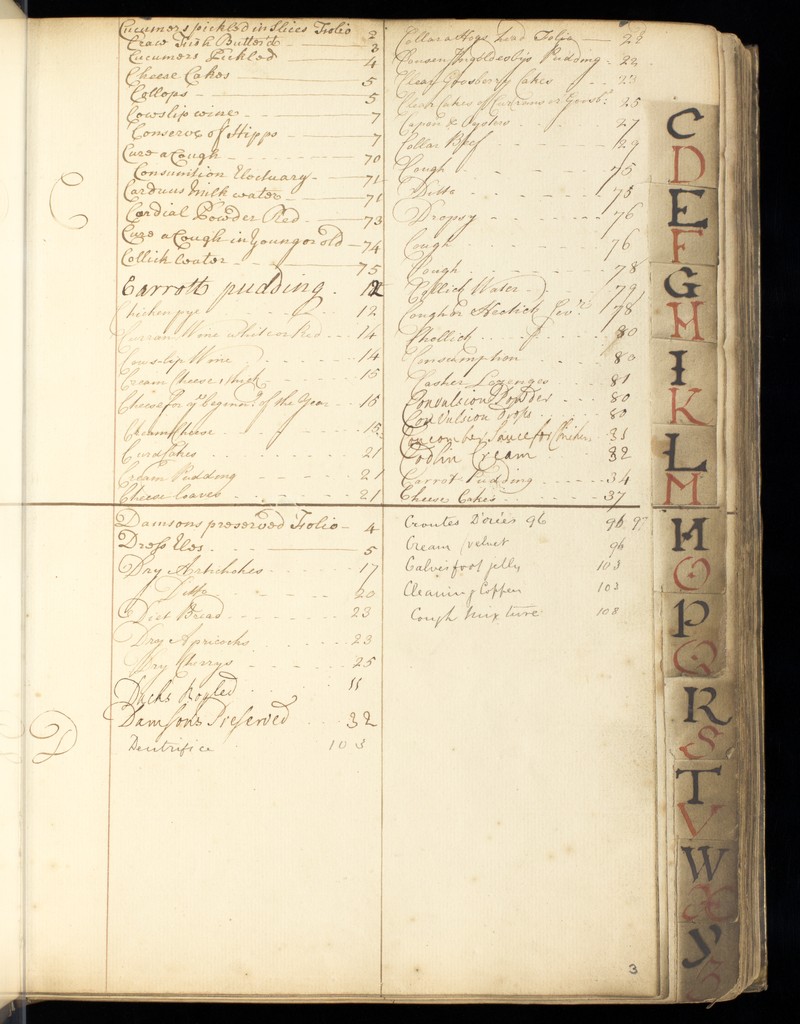 Cucumers pickled in Slices Folio 2
Craw Fish Butterd 3
Cucumers Pickled 4
Cheese Cakes 5
Collops 5
Cowslip wine 7
Conserve of Hipps 7
Cure a Cough 70
Consumition Electuary 71
Carduus milk water 71
Cordial Powder Red 73
Cure a Cough in Young or old 74
Collick water 75
Carrott pudding 12
Chicken pye 12
Curran Wine white or Red 14
Cowslip Wine 14
Cream Cheese thick 15
Cheese for ye beginng of the Year 15
Cream Cheese 15
Curd Cakes 21
Cream Pudding 21
Cheese loaves 21
C
Collar a Hogs head Folio
Pudding 22
Clear Goosberry Cakes 23
Clear Cakes of Currans or Goosb: 25
Capon & Oysters 27
Collar Beef 29
Cough 75
Ditto 75
Dropsy 76
Cough 76
Cough 78
Collick Water 79
Cough or Hectick Fevr 78
Chollick 80
Consumption 80
Casher Lozenges 81
Convulsion Powder 80
Convulsion Drops 80
Coucomber Sauce for Chicken 31
Codlin Cream 32
Carrot Pudding 34
Cheese Cakes 37
Damsons preserved Folio 4
Dress Eles 5
Dry Artichokes 17
Ditto 20
Diet Bread 23
Dry Apricocks 23
Dry Cherrys 25
Ducks 11
Damsons Preserved 32
Dentrifice 103
D
Croutes 96 96 97
Cream velvet 96
Calves foot jelly 103
Cleaning Copper 103
Cough Mixture 108
3
C
D
E
F
G
H
I
K
L
M
N
O
P
Q
R
S
T
V
W
X
Y
Z